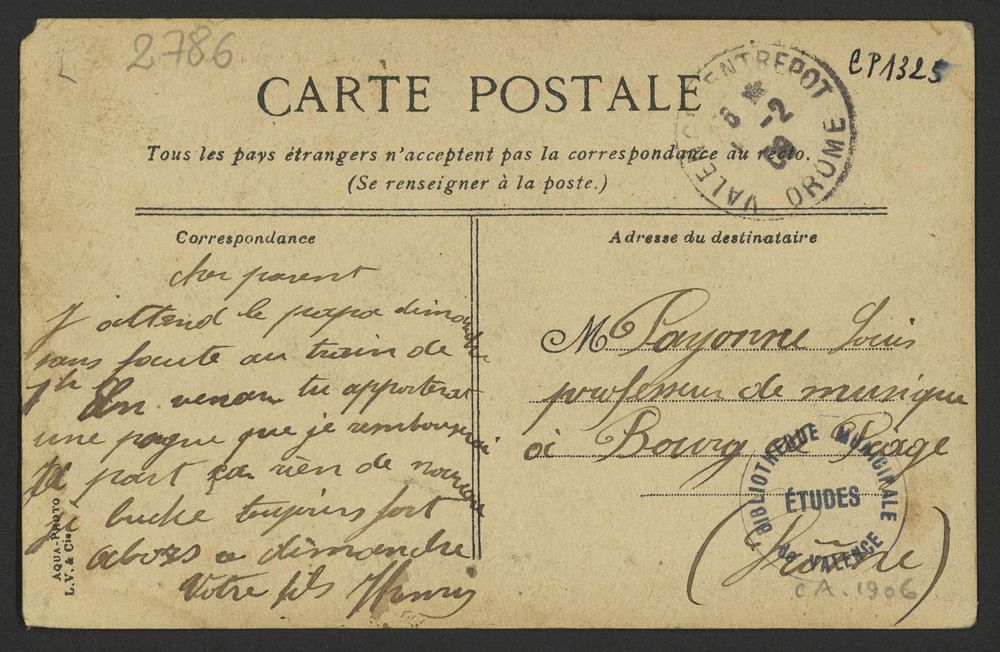 2786
CP1325
CARTE POSTALE
VALENCE ENTREPOT DRÔME
8 -2
Tous les pays étrangers n'acceptent pas la correspondance au recto.
(Se renseigner à la poste.)
Correspondance
cher parent
J attend le papa dimanche
sans faute au train de
1h En venan tu apporteras
une pogne que je rembourserai
part ça rien de nouveau
buche toujours fort
alors a dimanche
Votre fils Henry
AQUA-PHOTO
L.V. & Cie
Adresse du destinataire
M Payonne Louis
professeur de musique
à Bourg de Péage
(Drôme)
BIBLIOTHEQUE MUNICIPALE
ÉTUDES
de VALENCE
CA. 1906